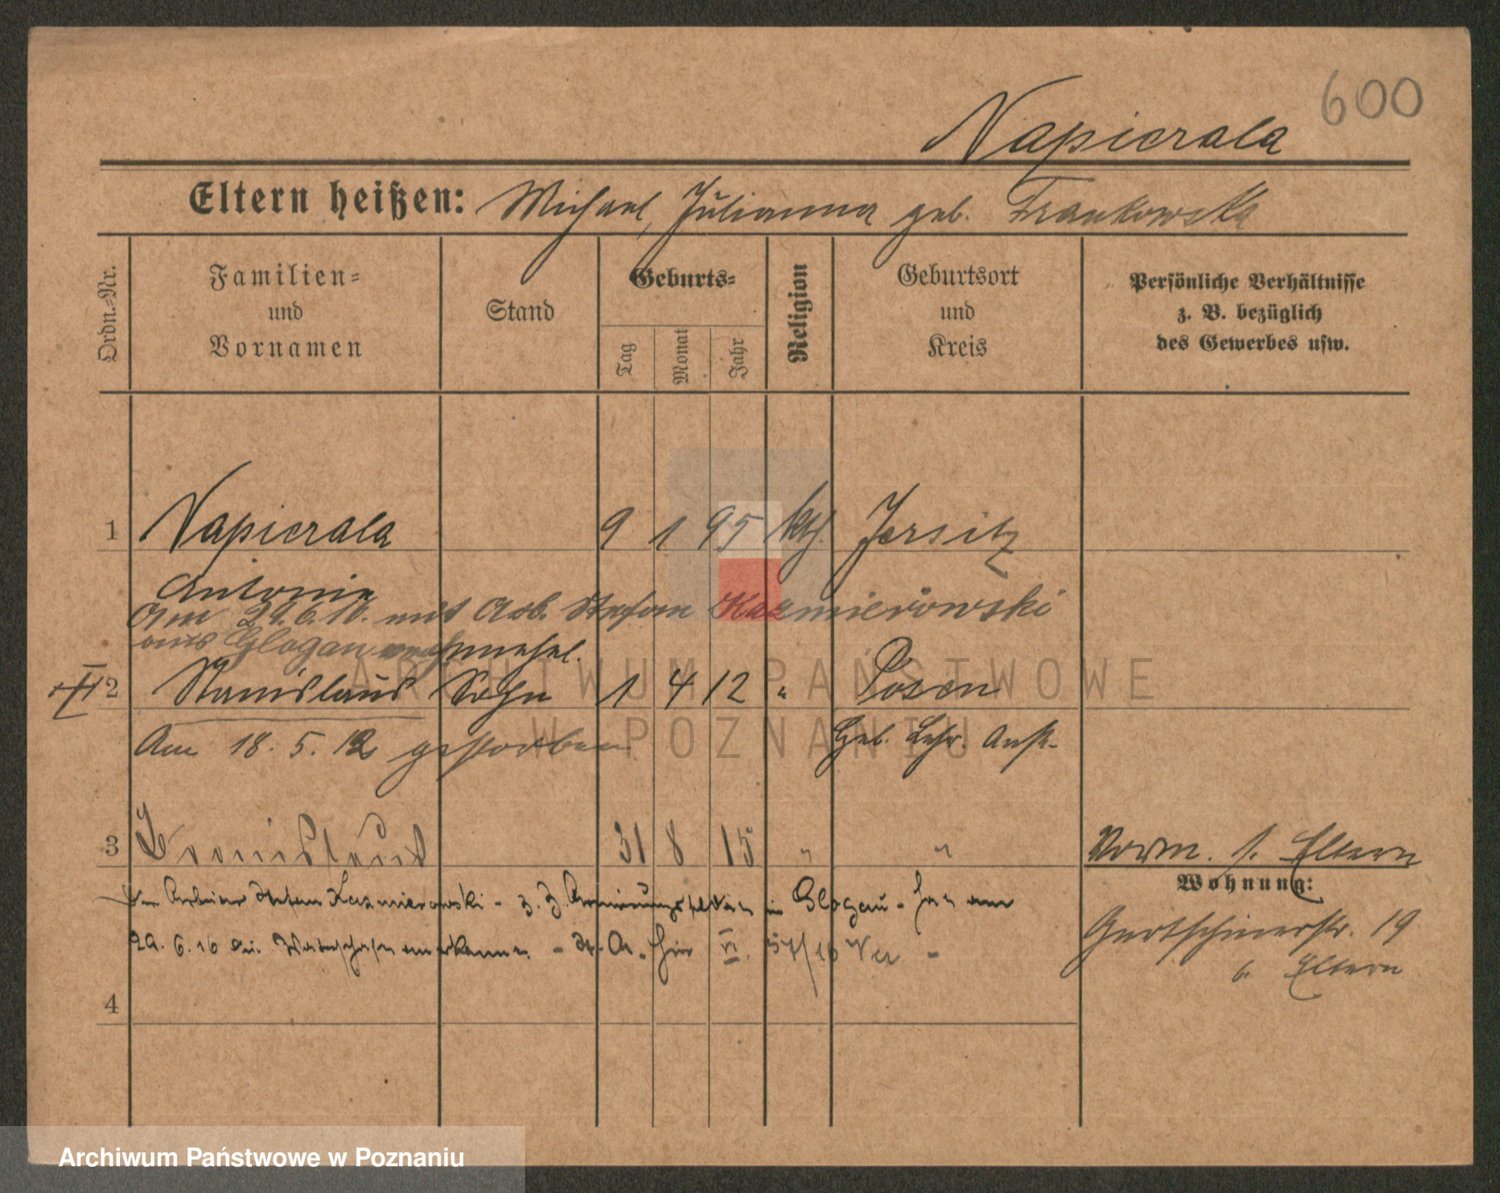 600
Napierala
Eltern heißen: Michael, Julianna geb. Frankowska
Ordn.-Nr.
Familien-
und
Vornamen
Stand
Geburts-
Tag
Monat
Jahr
Religion
Geburtsort
und
Kreis
Persönliche Verhältnisse
z. B. bezüglich
des Gewerbes usw.
1 Napierala 9 1 95 kth Jersitz
Antonie
Am 29.6.16. mit Arb. Stefan Kazmierowski
aus Glogau verehel.
2 Stanislaus Sohn 1 4 12 " Posen
Am 18. 5. 12 gestorben Geb. Lehr. Anst.
3 Bronislaus 31 8 15 " " Vorm. s. Eltern
Wohnung:
Der Arbeiter Stefan Kazmierowski - z. Z. Armierungssoldat in Glogau - hat am
29. 6. 16 die Vaterschaft anerkannt - St. A. hier VI. 57/16
Gurtschinerstr. 19
b. Eltern
4
ARCHIWUM PAŃSTWOWE
W POZNANIU
Archiwum Państwowe w Poznaniu